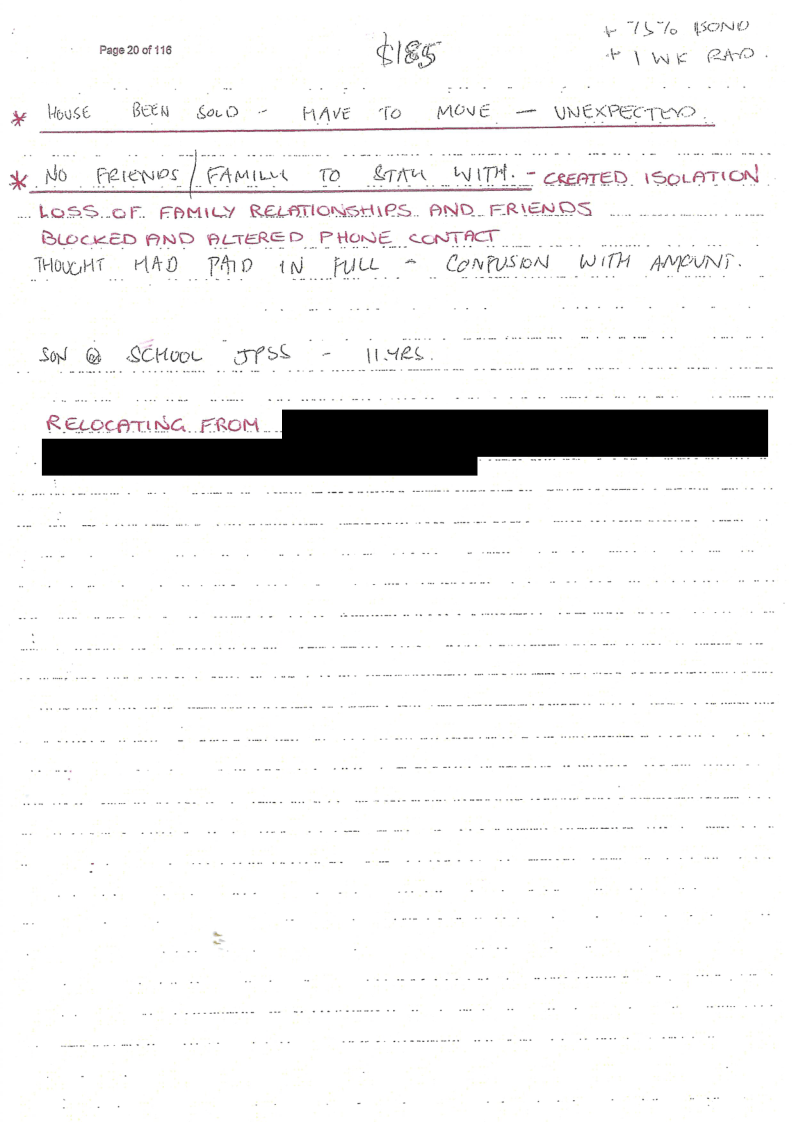 Page 20 of 116
$185
+ 75% BOND
+ 1 WK RAD.
* HOUSE BEEN SOLD - HAVE TO MOVE - UNEXPECTED.
* NO FRIENDS / FAMILY TO STAY WITH. - CREATED ISOLATION
LOSS OF FAMILY RELATIONSHIPS AND FRIENDS
BLOCKED AND ALTERED PHONE CONTACT
THOUGHT HAD PAID IN FULL - CONFUSION WITH AMOUNT.
SON @ SCHOOL JPSS - 11.YRS.
RELOCATING FROM